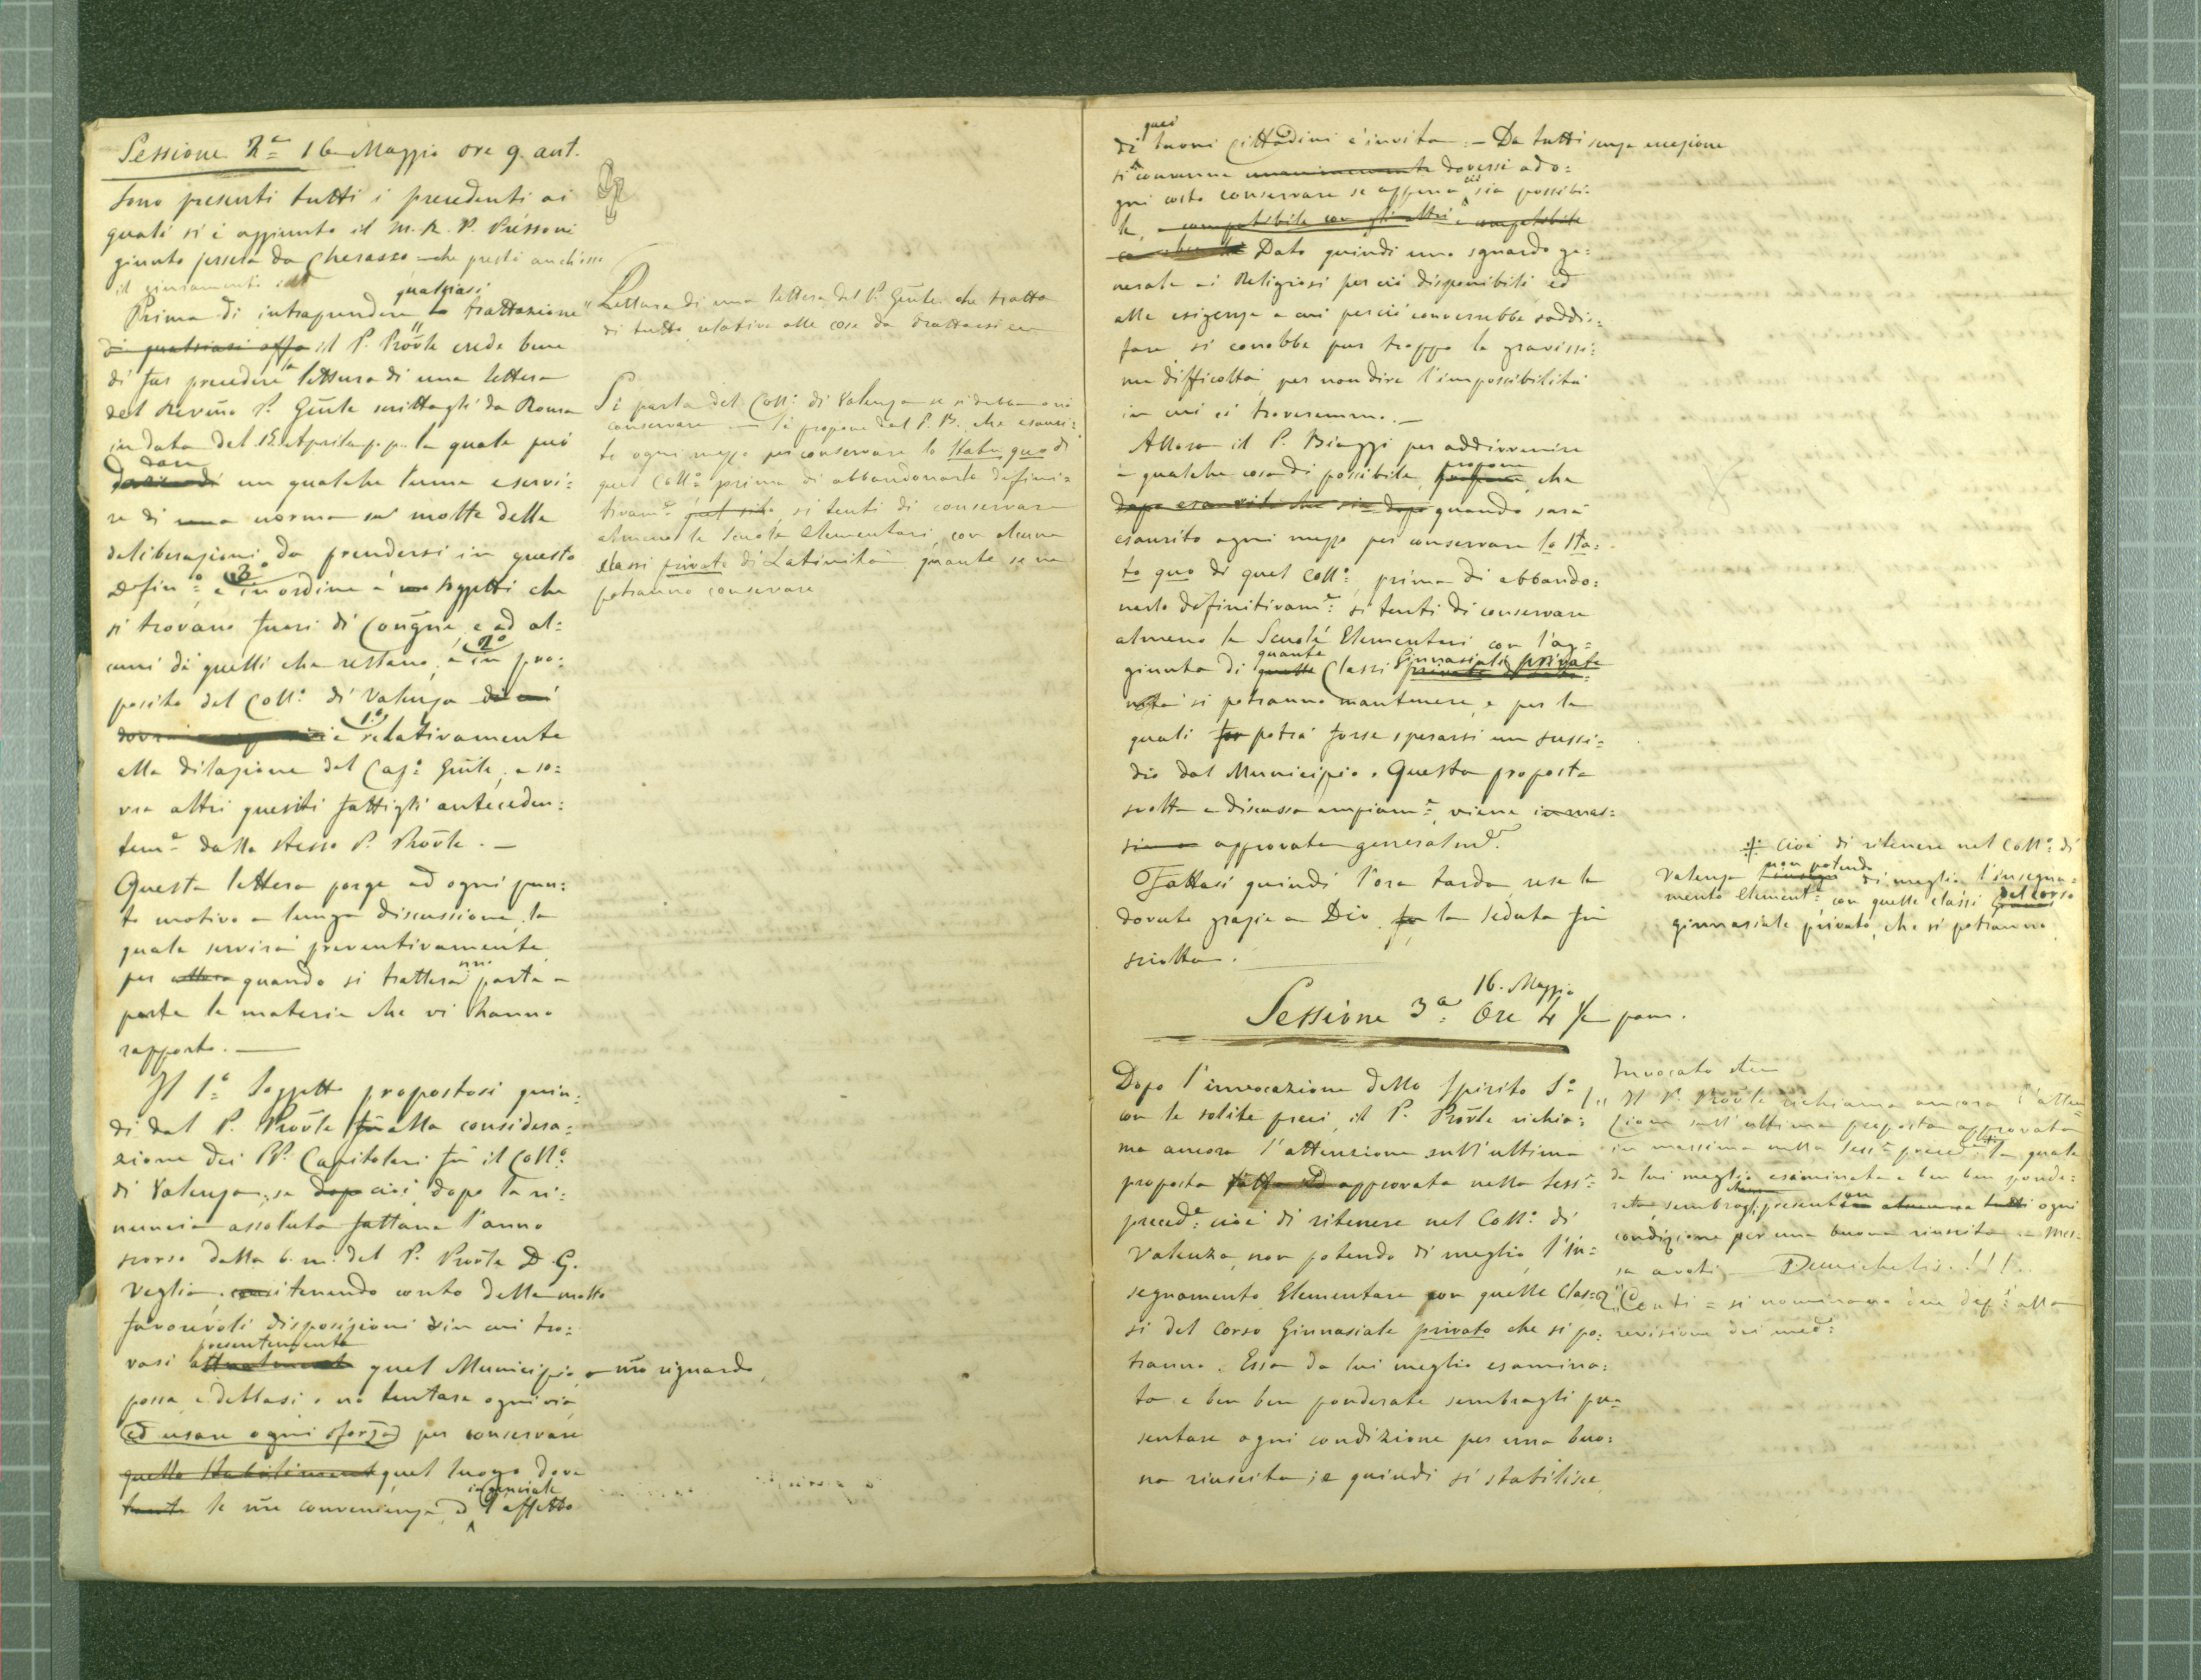 Sessione 2.a 16 Maggio ore 9. ant.
Sono presenti tutti i precedenti ai
quali si è aggiunto il M. R. P. Pressoni
giunto jersera da Cherasco che prestò anch'esso
il giuramento
qualsiasi
Prima di intraprendere la trattazione
di qualsiasi affa il P. Provle crede bene
di far precedere la lettura di una lettera
del Revmo P. Gnle scrittagli da Roma
in data del 15 Aprile p. p. la quale può
dare
un qualche lume e servi=
re di una norma su molte delle
deliberazioni da prendersi in questo
Defin.o: e 3.o in ordine a' soggetti che
si trovano fuori di Congne, e ad al=
cuni di quelli che restano, e 2.o in pro=
posito del Coll.o di Valenza di cui
e 1.o relativamente
alla dilazione del Cap.o Gnle, e so=
vra altri quesiti fattigli anteceden=
tem.e dallo stesso P. Provle. —
Questa lettera porge ad ogni pun=
to motivo a lunga discussione, la
quale servirà preventivamente
per allora quando si tratteranno parte a
parte le materie che vi hanno
rapporto. —
Il 1.o Soggetto propostosi quin=
di dal P. Provle fu alla considera=
zione dei PP. Capitolari fu il Coll.o
di Valenza; se dopo cioè dopo la ri=
nuncia assoluta fattane l'anno
scorso dalla b. m. del P. Provle D. G.
Veglia, e tenendo conto delle molto
favorevoli disposizioni in cui tro=
presentemente
vasi attualmente quel Municipio a nro riguardo,
possa e debbasi o no tentare ogni via
ed usare ogni sforzo per conservare
quello Stabilimento quel luogo dove
tante le nre convenienze, e l'affetto

Lettura di una lettera del P. Gnle che tratta
di tutto relativo alle cose da trattarsi
Si parla del Coll.o di Valenza se si debba o no
conservare. — Si propone dal P. B. che esauri=
to ogni mezzo per conservare lo Statu quo di
quel Coll.o prima di abbandonarlo defini=
tivam.e si tenti di conservare
almeno le Scuole Elementari, con alcune
classi private di Latinità quante se ne
potranno conservare

quei
di buoni Cittadini c'invita: — Da tutti senza eccezione
si convenne unanimemente doversi ad o=
gni costo conservare se appena ciò sia possibi=
le, e compatibile con gli altri e compatibile
Dato quindi uno sguardo ge=
nerale ai Religiosi perciò disponibili ed
alle esigenze a cui perciò converrebbe soddis=
fare, si conobbe pur troppo la gravissi=
ma difficoltà, per non dire l'impossibilità
in cui ci troveremmo. —
Allora il P. Biaggi per addivvenire
a qualche cosa di possibile, propone, che
dopo esauriti che sia dopo quando sarà
esaurito ogni mezzo per conservare lo Sta=
to quo di quel Coll.o, prima di abbando=
narlo definitivam.e: si tenti di conservare
almeno le Scuole Elementari con l'ag=
giunta di quante Classi Ginnasiali private
si potranno mantenere, e per le
quali potrà forse sperarsi un sussi=
dio dal Municipio. Questa proposta
svolta e discussa ampiam.e, viene in mas=
sima approvata generalm.e.
Fattasi quindi l'ora tarda rese le
dovute grazie a Dio la seduta fu
sciolta.

+ cioè di ritenere nel Coll.o di
Valenza non potendo di meglio l'insegna=
mento element.e con quelle classi del corso
ginnasiale privato, che si potranno

16. Maggio
Sessione 3.a Ore 4 1/2 pom.
Dopo l'invocazione dello Spirito S.o
con le solite preci, il P. Provle richia=
ma ancora l'attenzione sull'ultima
proposta approvata nella Sess.e
preced.e cioè di ritenere nel Coll.o di
Valenza, non potendo di meglio, l'in=
segnamento Elementare con quelle Clas=
si del Corso Ginnasiale privato che si po=
tranno. Essa da lui meglio esamina=
ta e ben ben ponderata sembragli pre=
sentare ogni condizione per una buo=
na riuscita; e quindi si stabilisce

Invocato etc
1.o Il P. Provle richiama ancora l'atten=
zione sull'ultima proposta approvata
in massima nella Sess.e preced.e la quale
da lui meglio esaminata e ben ben ponde=
rata, sembragli presentare ogni
condizione per una buona riuscita — Mes=
sa a voti — Demichelis!!!
2.o Conti = si nominano due def.i alla
revisione dei med.i